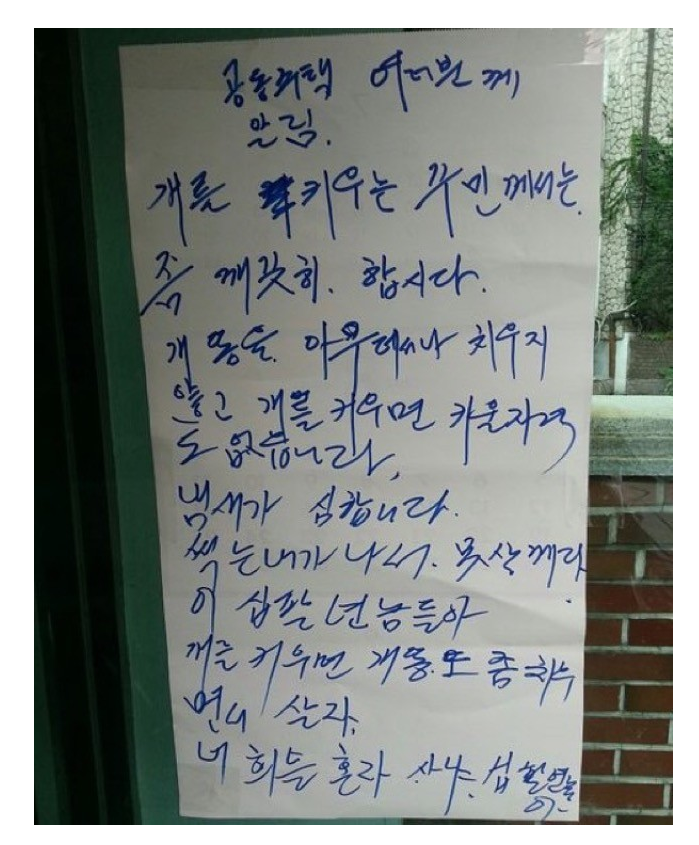 공동주택 여러분께
알림.
개를 키우는 주민께서는.
좀 깨끗히. 합시다.
개똥을. 아무데나 치우지
않고 개를 키우면 키울자격
도 없습니다.
냄새가 심합니다.
썩는내가 나서. 못살께다.
이 십팔 년놈들아
개를 키우면 개똥도 좀 치우
면서 살자.
너희들 혼자 사냐. 십팔년놈
아-